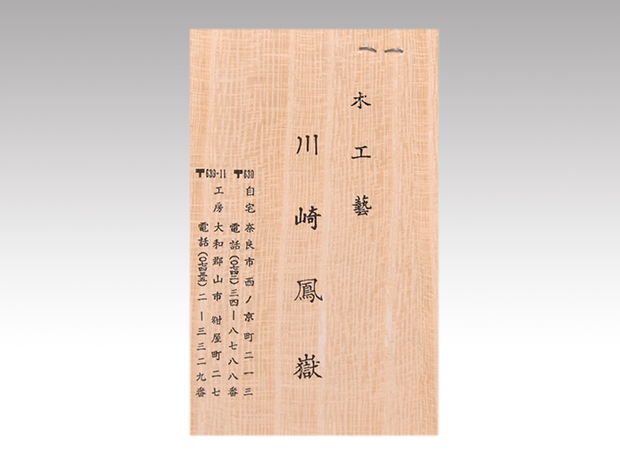 木工藝
川崎鳳嶽
〒630 自宅 奈良市西ノ京町二一三
電話(〇七四二)三四ー八七八八番
〒639-11 工房 大和郡山市紺屋町二七
電話(〇七四三五)二ー三三二九番